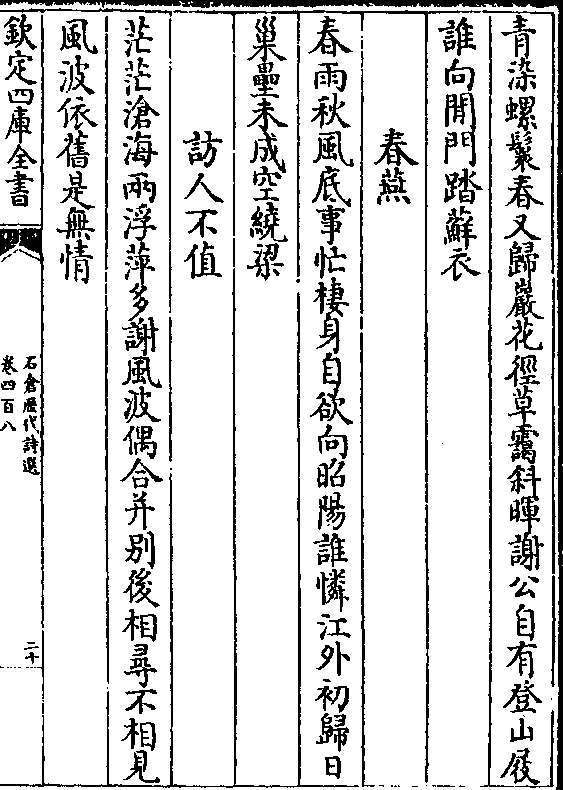 青染螺鬟春又歸巖花徑草靄斜暉謝公自有登山屐
誰向閒門踏蘚衣
春燕
春雨秋風底事忙棲身自欲向昭陽誰憐江外初歸日
巢壘未成空繞梁
訪人不值
茫茫滄海兩浮萍多謝風波偶合并别後相尋不相見
風波依舊是無情
欽定四庫全書
石倉歷代詩選
卷四百八
二十